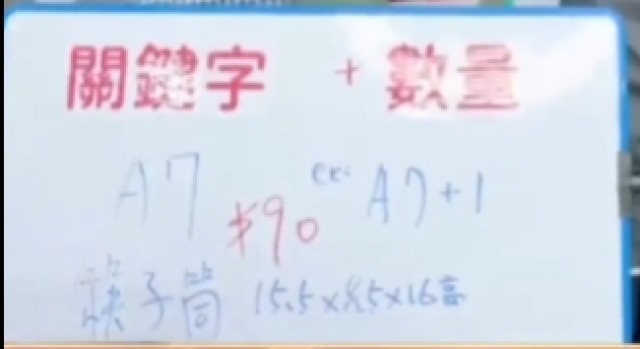 關鍵字 + 數量
A7 $90 ex: A7+1
筷子筒 15.5x8.5x16高